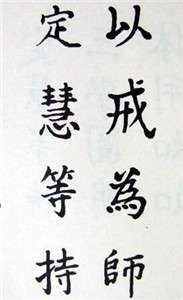 以戒為師
定慧等持